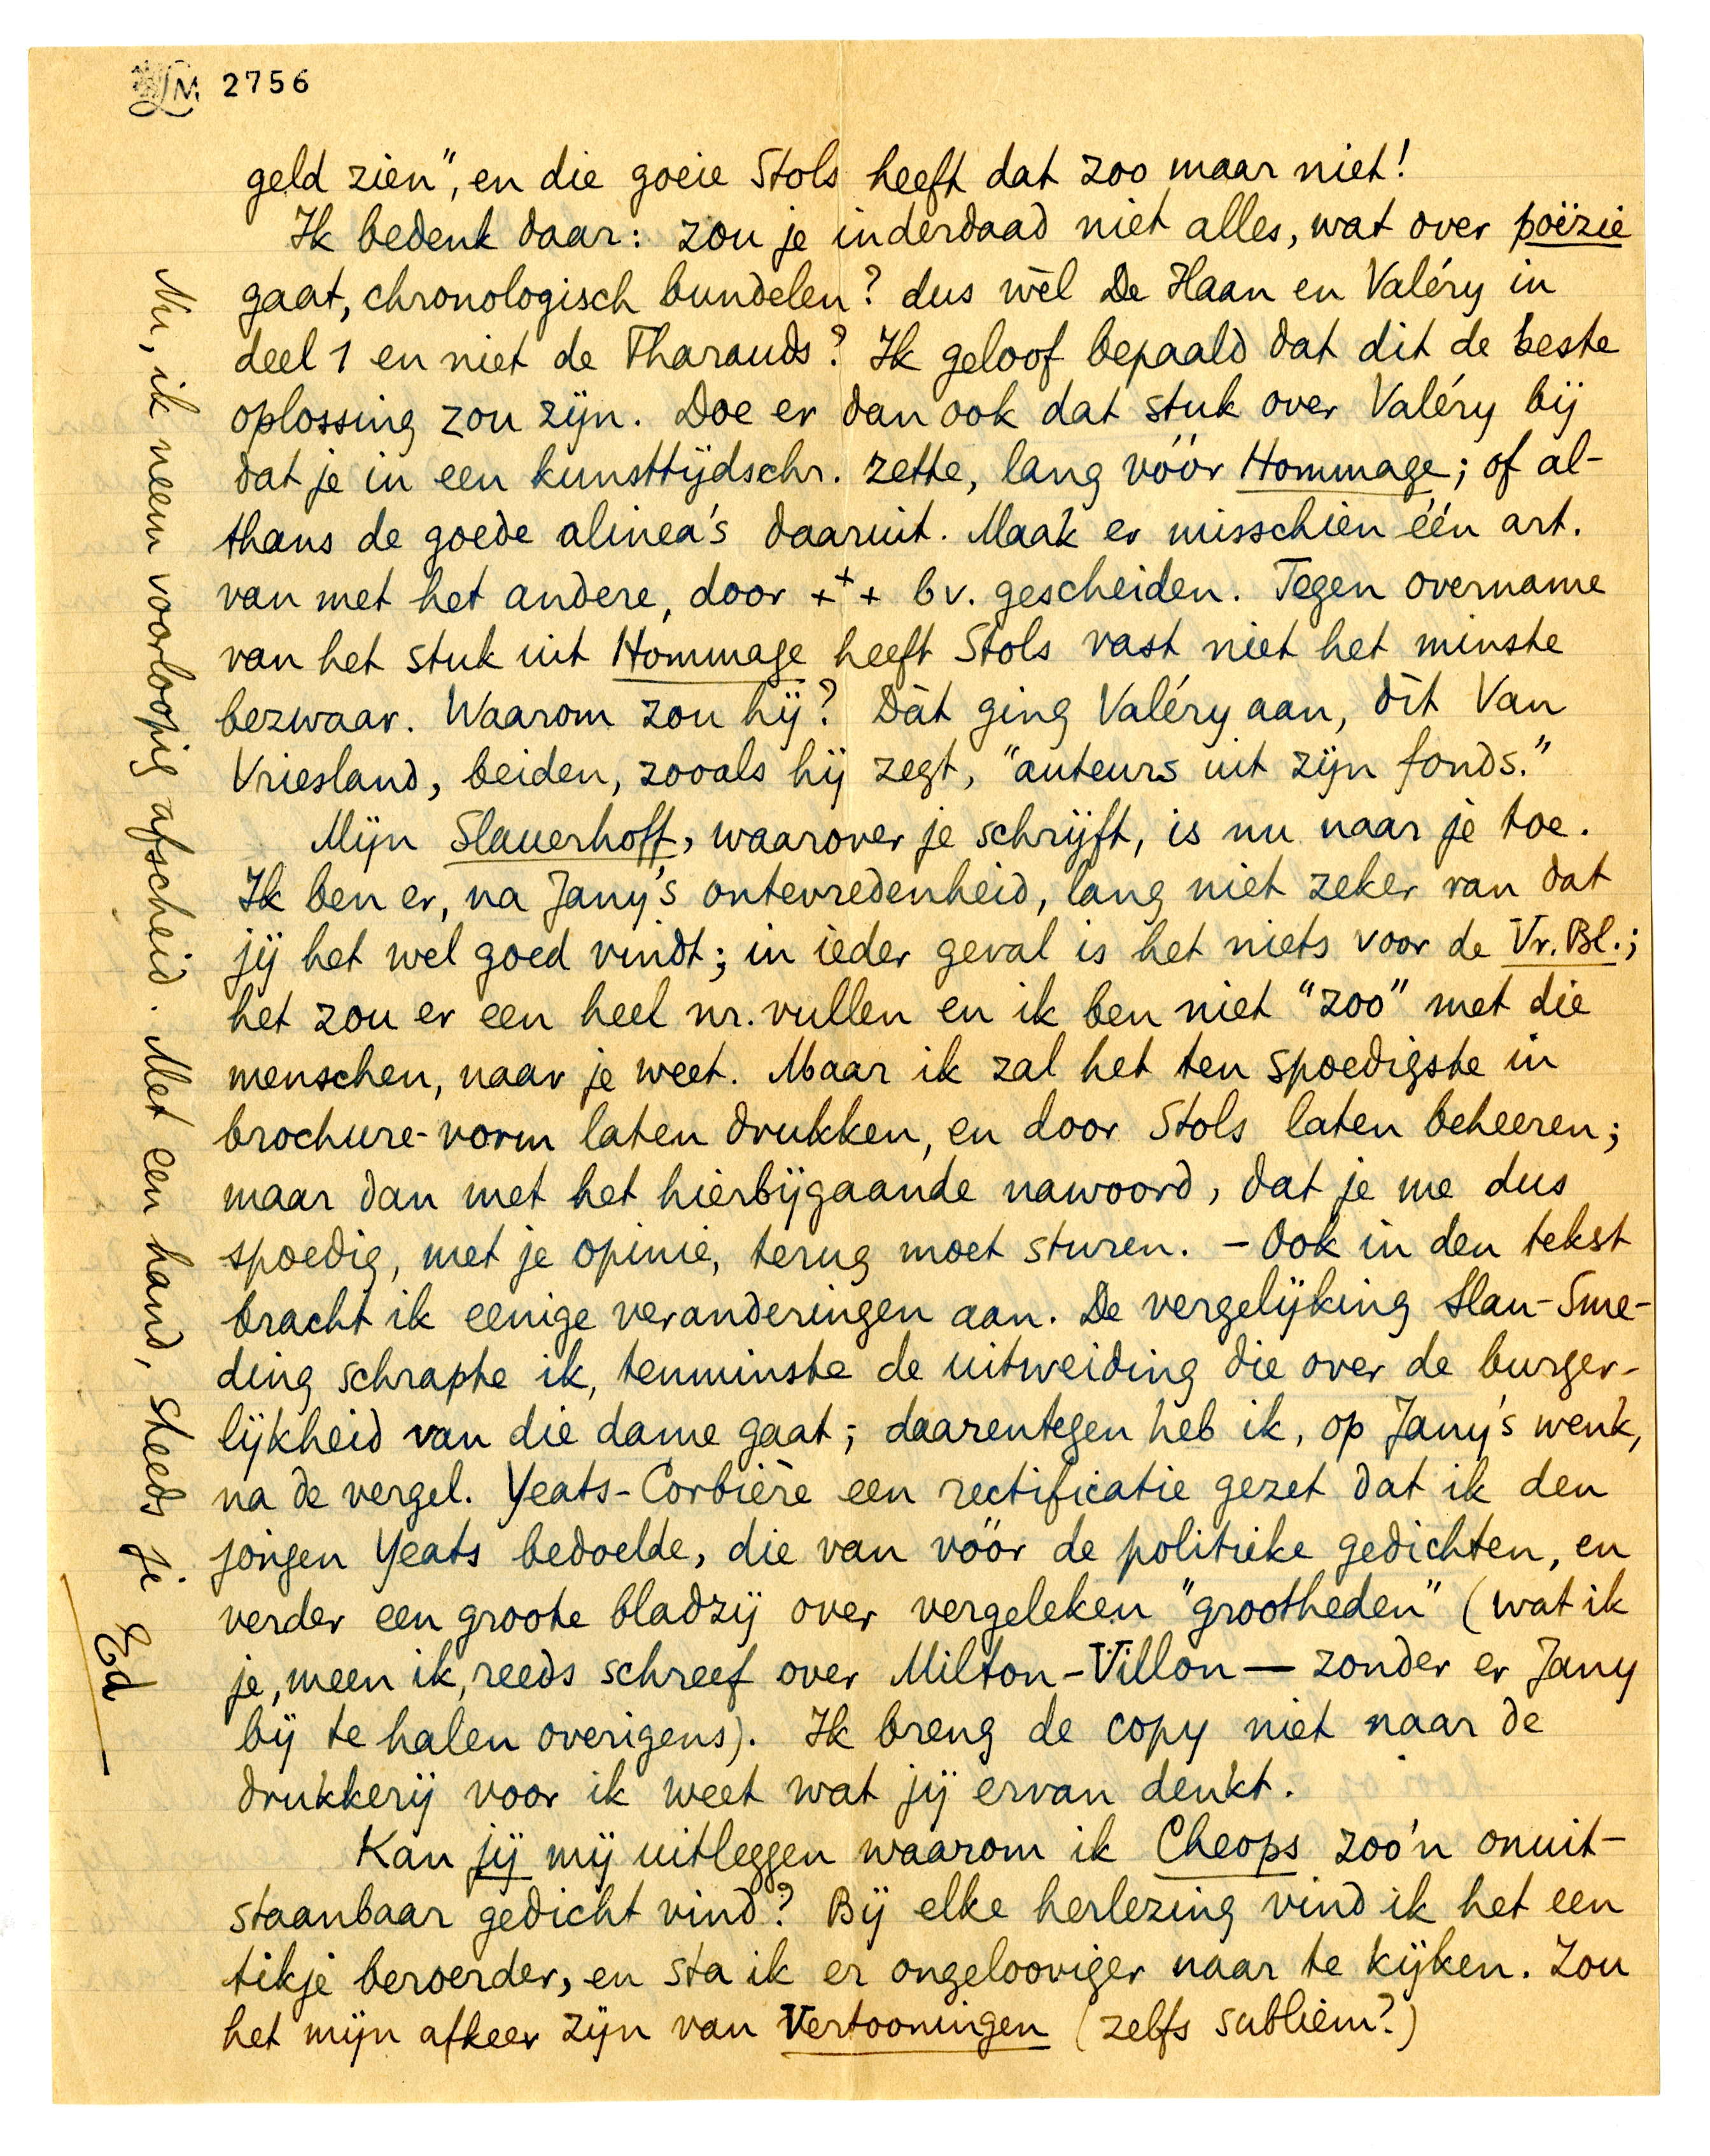 LM 2756
geld zien", en die goeie Stols heeft dat zoo maar niet!
Ik bedenk daar: zou je inderdaad niet alles, wat over poëzie
gaat, chronologisch bundelen? dus wèl De Haan en Valéry in
deel 1 en niet de Tharauds? Ik geloof bepaald dat dit de beste
oplossing zou zijn. Doe er dan ook dat stuk over Valéry bij
dat je in een kunsttijdschr. zette, lang vóór Hommage; of al-
thans de goede alinea's daaruit. Maak er misschien één art.
van met het andere, door +++ bv. gescheiden. Tegen overname
van het stuk uit Hommage heeft Stols vast niet het minste
bezwaar. Waarom zou hij? Dàt ging Valéry aan, dìt Van
Vriesland, beiden, zooals hij zegt, "auteurs uit zijn fonds."
Mijn Slauerhoff, waarover je schrijft, is nu naar je toe.
Ik ben er, na Jany's ontevredenheid, lang niet zeker van dat
jij het wel goed vindt; in ieder geval is het niets voor de Vr. Bl.;
het zou er een heel nr. vullen en ik ben niet "zoo" met die
menschen, naar je weet. Maar ik zal het ten spoedigste in
brochure-vorm laten drukken, en door Stols laten beheeren;
maar dan met het hierbijgaande nawoord, dat je me dus
spoedig, met je opinie, terug moet sturen. – Ook in den tekst
bracht ik eenige veranderingen aan. De vergelijking Slau-Sme-
ding schrapte ik, tenminste de uitweiding die over de burger-
lijkheid van die dame gaat; daarentegen heb ik, op Jany's wenk,
na de vergel. Yeats-Corbière een rectificatie gezet dat ik den
jongen Yeats bedoelde, die van vóór de politieke gedichten, en
verder een groote bladzij over vergeleken "grootheden" (wat ik
je, meen ik, reeds schreef over Milton-Villon — zonder er Jany
bij te halen overigens). Ik breng de copy niet naar de
drukkerij voor ik weet wat jij ervan denkt.
Kan jij mij uitleggen waarom ik Cheops zoo'n onuit-
staanbaar gedicht vind? Bij elke herlezing vind ik het een
tikje beroerder, en sta ik er ongelooviger naar te kijken. Zou
het mijn afkeer zijn van Vertooningen (zelfs subliem?)
Nu, ik neem voorloopig afscheid. Met een hand, steeds je
Ed